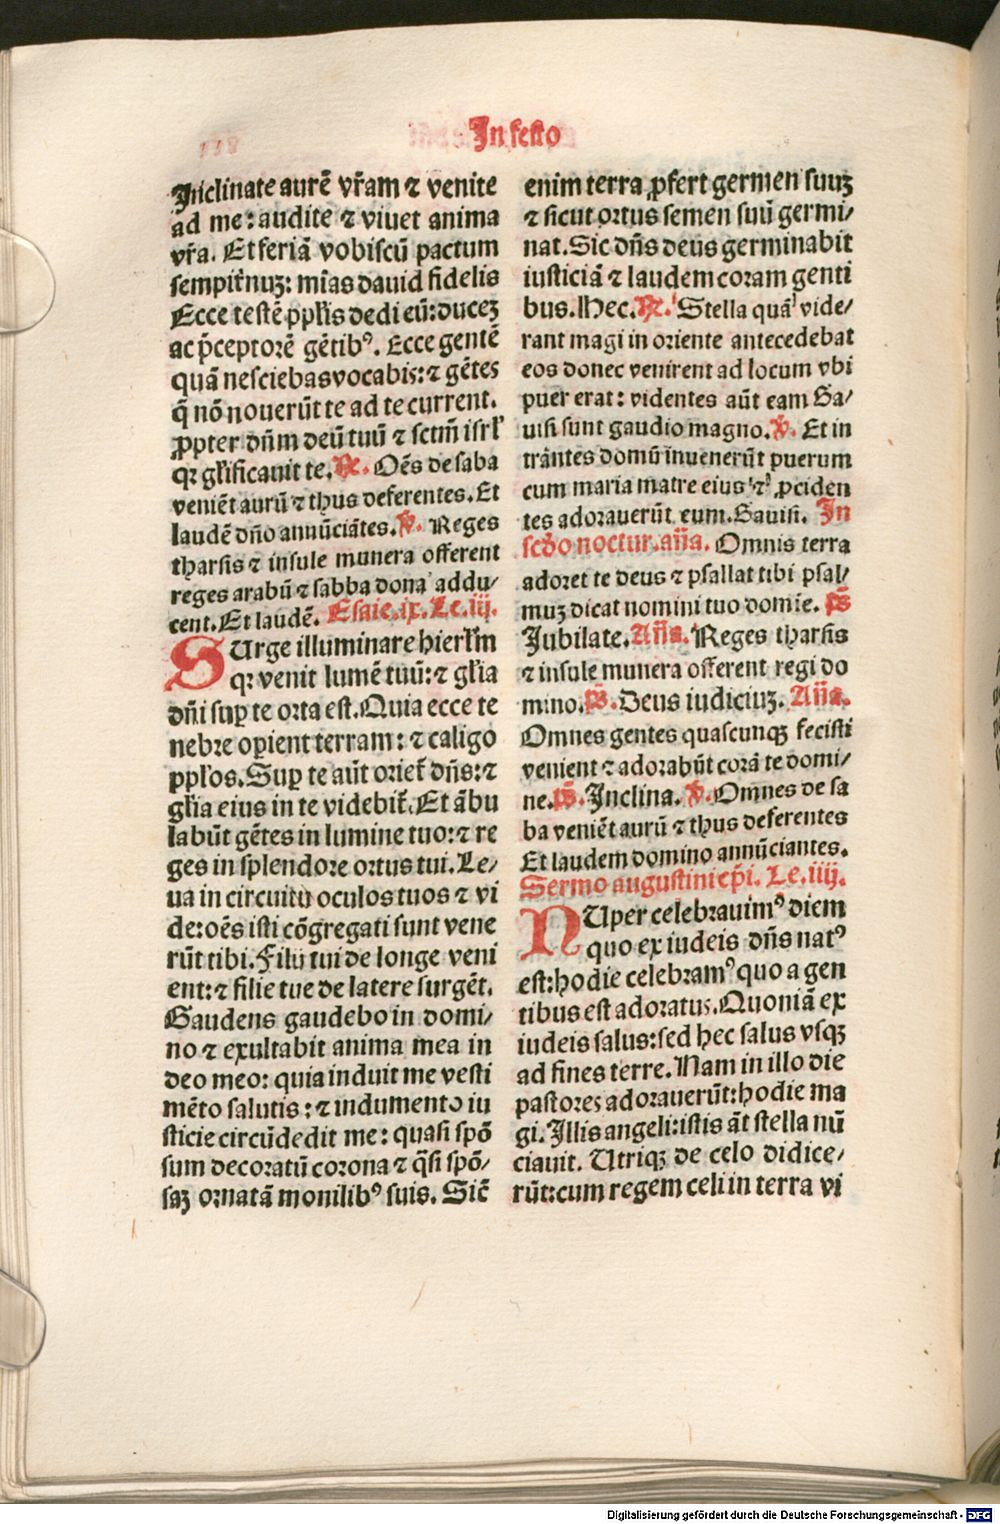 In festo
Inclinate aurē vr̄am ⁊ venite
ad me: audite ⁊ viuet anima
vr̄a. Et feriā vobiscū pactum
sempit̄nuꝫ: mīas dauid fidelis
Ecce testē ꝑpl̄is dedi eū: duceꝫ
ac p̄ceptorē gētibꝰ. Ecce gentē
quā nesciebas vocabis: ⁊ gētes
q̄ nō nouerūt te ad te current.
ꝓpter dn̄m deū tuū ⁊ sctm̄ isrl̄
qꝛ gl̄ificauit te. ℟. Oēs de saba
veniēt aurū ⁊ thus deferentes. Et
laudē dn̄o annūciātes. ℣. Reges
tharsis ⁊ insule munera offerent
reges arabū ⁊ sabba dona addu/
cent. Et laudē. Esaie.ix. Le.iij.
SUrge illuminare hierl̄m
qꝛ venit lumē tuū: ⁊ gl̄ia
dn̄i suꝑ te orta est. Quia ecce te
nebre oꝑient terram: ⁊ caligo
ppl̄os. Suꝑ te aūt oriet̄ dn̄s: ⁊
gl̄ia eius in te videbit̄. Et ābu
labūt gētes in lumine tuo: ⁊ re
ges in splendore ortus tui. Le/
ua in circuitu oculos tuos ⁊ vi
de: oēs isti cōgregati sunt vene
rūt tibi. Filii tui de longe veni
ent: ⁊ filie tue de latere surgēt.
Gaudens gaudebo in domi/
no ⁊ exultabit anima mea in
deo meo: quia induit me vesti
mēto salutis: ⁊ indumento iu
sticie circūdedit me: quasi spō
sum decoratū corona ⁊ q̄si spō/
saꝫ ornatā monilibꝰ suis. Sic̄
enim terra ꝓfert germen suuꝫ
⁊ sicut ortus semen suū germi/
nat. Sic dn̄s deus germinabit
iusticiā ⁊ laudem coram genti
bus. Hec. ℟. Stella quā vide/
rant magi in oriente antecedebat
eos donec venirent ad locum vbi
puer erat: videntes aūt eam Ga/
uisi sunt gaudio magno. ℣. Et in
trātes domū inuenerūt puerum
cum maria matre eius ⁊ ꝓciden
tes adorauerūt eum. Gauisi. In
scd̄o noctur. an̄a. Omnis terra
adoret te deus ⁊ psallat tibi psal/
muꝫ dicat nomini tuo domīe. ps̄
Jubilate. An̄a. Reges tharsis
⁊ insule munera offerent regi do
mino. ps̄. Deus iudiciuꝫ. An̄a.
Omnes gentes quascunqꝫ fecisti
venient ⁊ adorabūt corā te domi/
ne. ps̄. Inclina. ℣. Omnes de sa
ba veniēt aurū ⁊ thus deferentes
Et laudem domino annūciantes.
Sermo augustini ep̄i. Le.iiij.
NUper celebrauimꝰ diem
quo ex iudeis dn̄s natꝰ
est: hodie celebramꝰ quo a gen
tibus est adoratus. Quoniā ex
iudeis salus: sed hec salus vsqꝫ
ad fines terre. Nam in illo die
pastores adorauerūt: hodie ma
gi. Illis angeli: istis āt stella nū
ciauit. Utriqꝫ de celo didice/
rūt: cum regem celi in terra vi
Digitalisierung gefördert durch die Deutsche Forschungsgemeinschaft - DFG